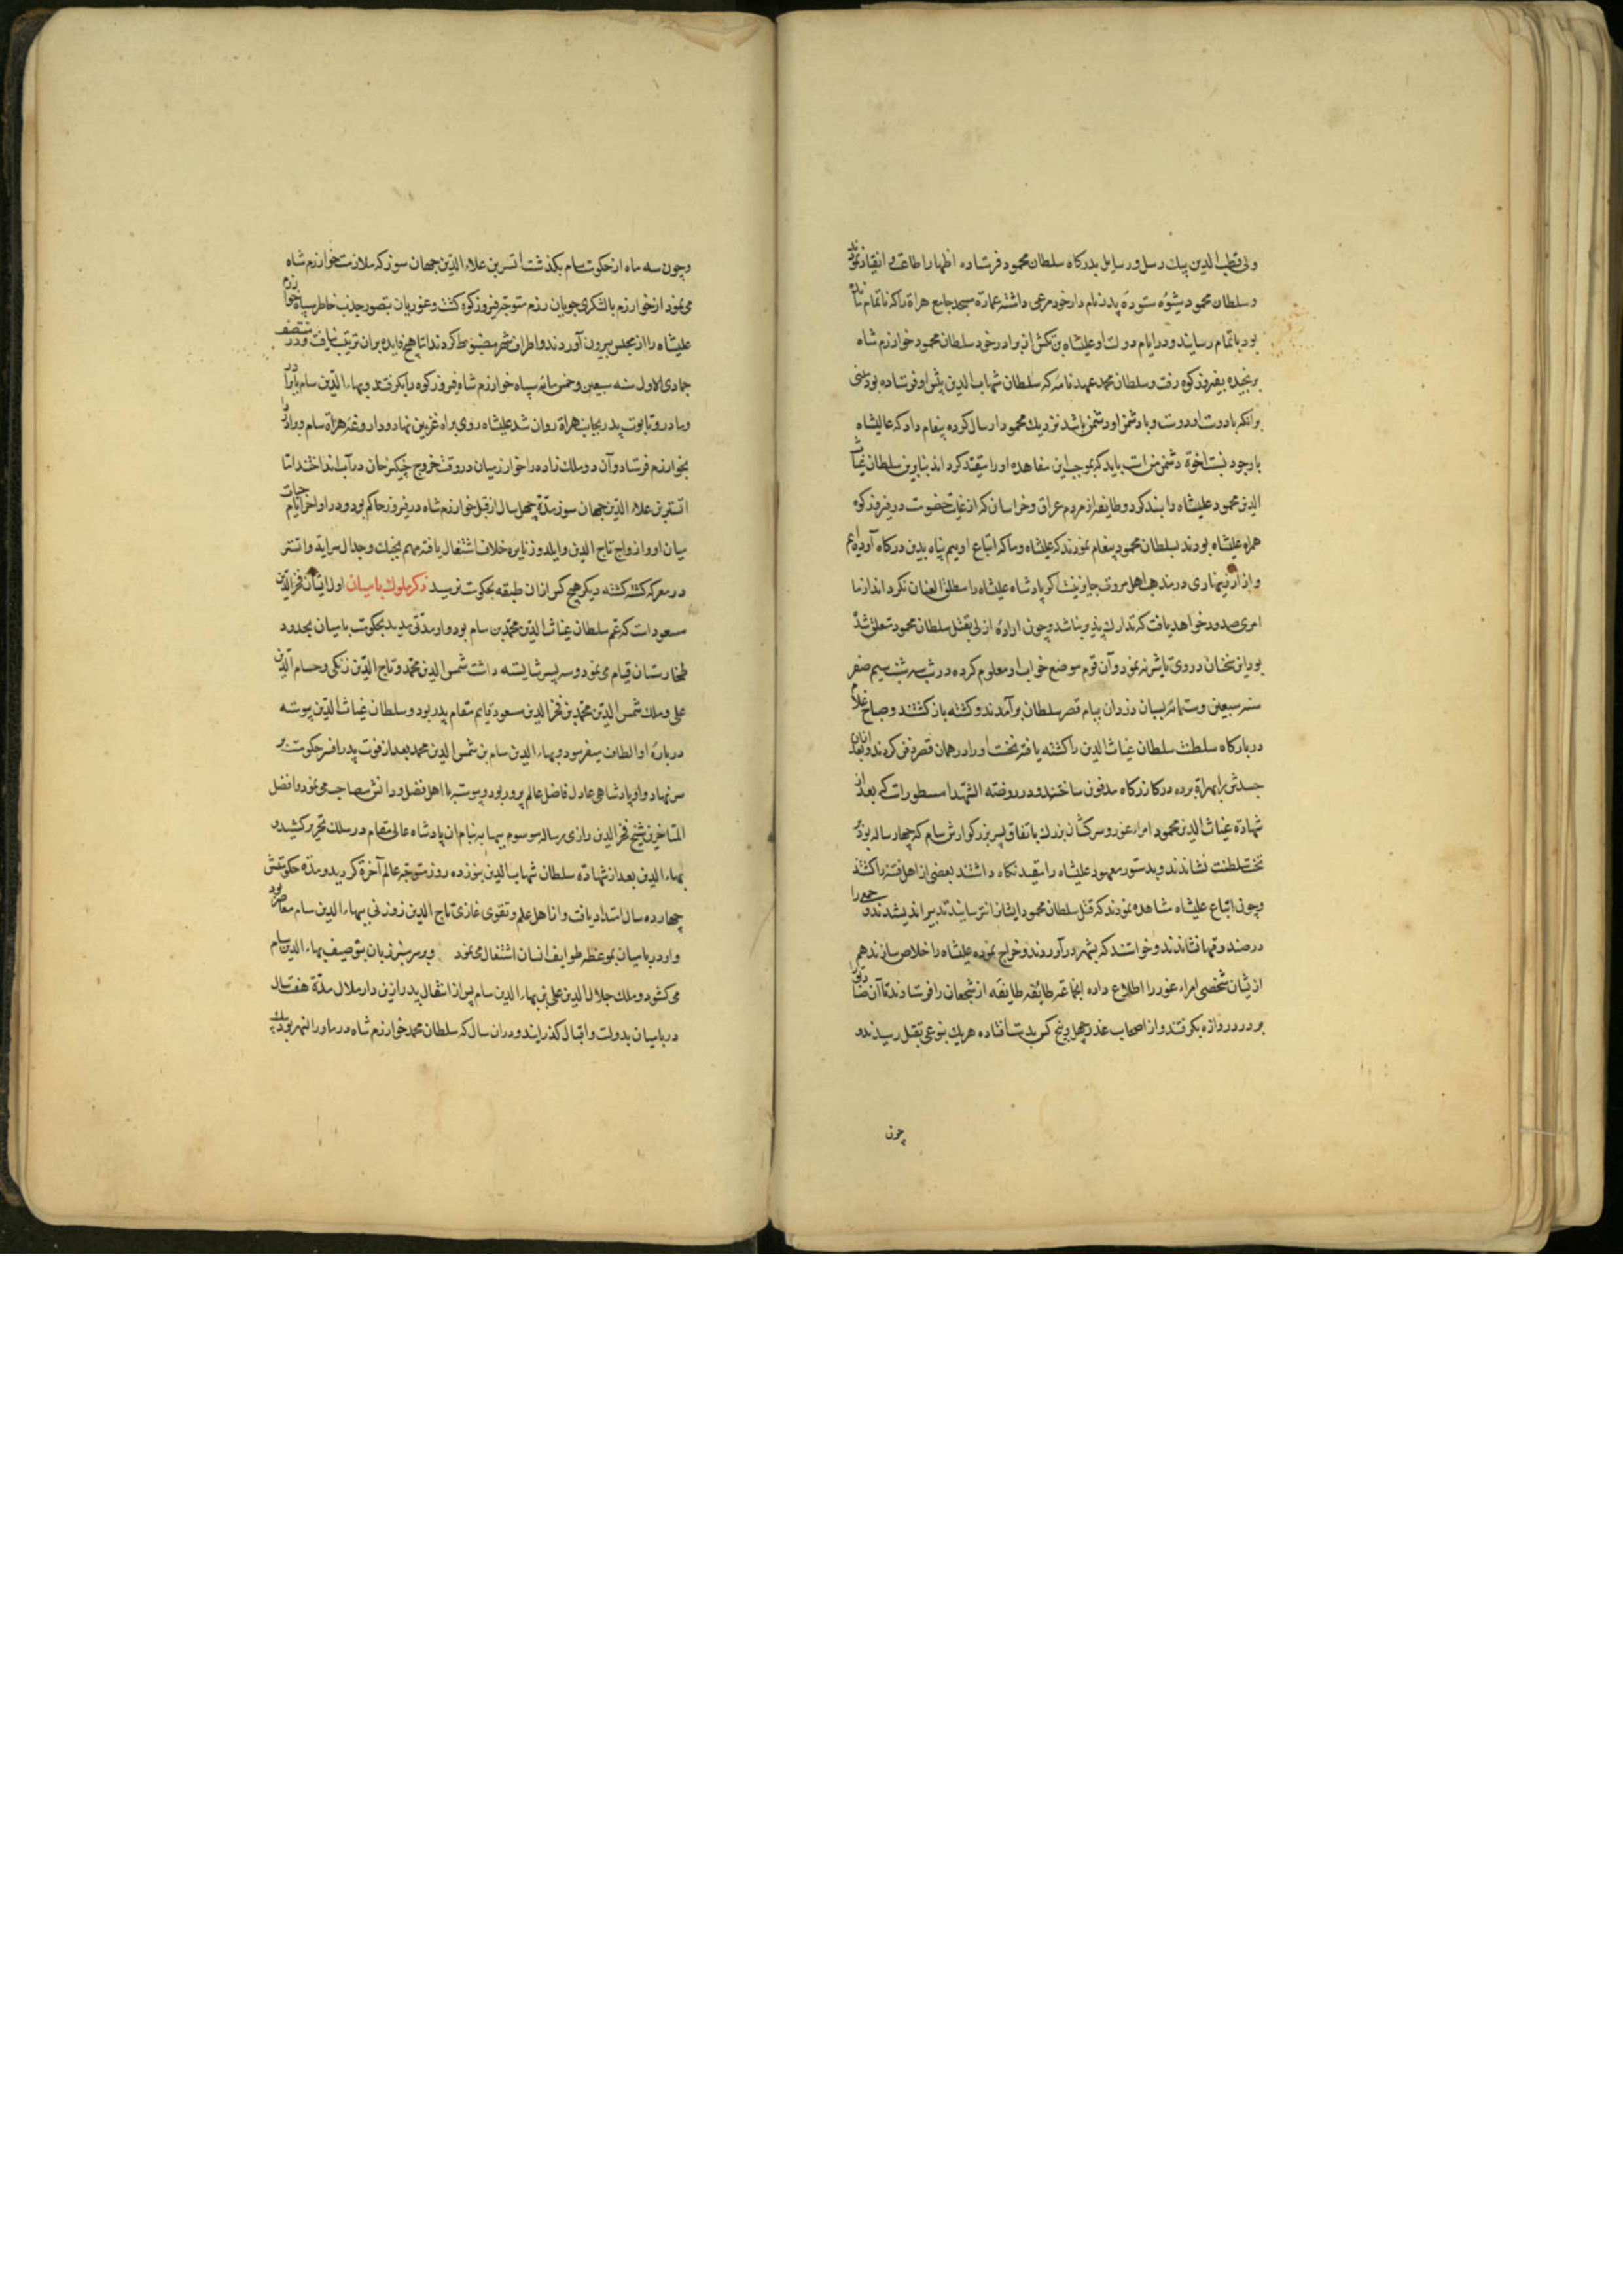 ولی قطب الدین پیک رسل و رسایل بدرکاه سلطان محمود فرستاده اظهار اطاعت و انقیاد نمودند
و سلطان محمود بشیوهٔ ستودهٔ پدر نام دار خود مرعی داشته عمارة مسجد جامع هراة را که ناتمام مانده
بود باتمام رسانید و در ایام دولت او علیشاه بن تکش از برادر خود سلطان محمود خوارزم شاه
برنجیده بفیروزکوه رفت و سلطان محمد عهد نامهٔ که سلطان شهاب الدین پیش او فرستاده بود مبنی
برانکه با دوست او دوست و با دشمن او دشمن باشد نزدیک محمود ارسال کرده پیغام داد که عالیشاه
با وجود نسبت اخوة دشمن من است باید که بموجب این معاهده او را مقید کرداند بنابرین سلطان غیاث
الدین محمود علیشاه را بند کرد و طایفهٔ از مردم عراق و خراسان که از غایت خصوصت در فیروزکوه
همراه علیشاه بودند بسلطان محمود پیغام نمودند که علیشاه و ما که اتباع اوییم پناه بدین درکاه آورده ایم
و آزار زینهاری در مذهب اهل مروت جایز نیست اکر پادشاه علیشاه را مطلق العنان نکرداند از ما
امری صدور خواهد یافت که تدارک پذیر نباشد و چون ارادهٔ ازلی بقتل سلطان محمود متعلق شده
بود این سخنان در وی تاثیر ننمود و آن قوم موضع خواب او معلوم کرده در شب سه شنبه سیم صفر
سنه سبعین و ستمائه بسان دزدان ببام قصر سلطان برآمدند و کشته بازکشتند و صباح غلام
در بارکاه سلطنت سلطان غیاث الدین را کشته یافته نخست او را در همان قصر دفن کردند و بعد ازان
جسدش را بهراة برده در کازرکاه مدفون ساختند و در روضة الشهدا مسطور است که بعد از
شهادة غیاث الدین محمود امراء غور و سرکشان بزرک باتفاق پسر بزرکوارش سام که چهار ساله بود بر
تخت سلطنت نشاندند و بدستور معهود علیشاه را مقید نکاه داشتند بعضی از اهل فتنه را کشتند
و چون اتباع علیشاه مشاهده نمودند که قتل سلطان محمود ایشانرا نترسانید تدبیر اندیشیدند و جمعی را
در صندوقها نشاندند و خواستند که بشهر درآوردند و خراج نموده علیشاه را خلاص سازند هم
از یشان شخصی امراء غور را اطلاع داده انجماعة طایفه طایفه از شجعان را فرستادند تا آن صنادیق
بر در دروازه بکرفتند و از اصحاب غدر چهل و پنج کس بدست افتاده هر یک بنوعی بقتل رسیدند و
چون
و چون سه ماه از حکومت سام بکذشت اتسز بن علاء الدین جهان سوز که ملازمت خوارزم شاه
می نمود از خوارزم با لشکری جویان رزم متوجه فیروزکوه کشت و غوریان بتصور جذب خاطر سپاه خوارزم
علیشاه را از مجلس بیرون آوردند و اطراف شهر مضبوط کردند اما هیچ فایده بران ترتیب نیافت و در منتصف
جمادی الاول سنه سبعین و خمس مائه سپاه خوارزم شاه فیروزکوه را بکرفتند و بهاء الدین سام با برادر
و مادر و تابوت پدر بجانب هراة روان شد علیشاه روی براه غزنین نهاد و داروغه هراة سام و برادر را
بخوارزم فرستاد و آن دو ملک زاده را خوارزمیان در وقت خروج چنکیز خان در آب انداختند اما
اتسز بن علاء الدین جهان سوز مدة چهل سال از قبل خوارزم شاه در فیروز حاکم بود و در اواخر ایام حیات
میان او و ازواج تاج الدین و ایلدوز نایره خلاف اشتعال یافته مهم بجنک و جدال سرایة و اتسز
در معرکه کشته کشته دیکر هیچ کس از ان طبقه بحکومت نرسید ذکر ملوک بامیان اول ایشان فخر الدین
مسعود است که عم سلطان غیاث الدین محمد بن سام بود و او مدتی مدید بحکومت بامیان بحدود
طخارستان قیام می نمود و سه پسر شایسته داشت شمس الدین محمد و تاج الدین زنکی و حسام الدین
علی و ملک شمس الدین محمد بن فخر الدین مسعود قایم مقام پدر بود و سلطان غیاث الدین پیوسته
دربارهٔ او الطاف میفرمود و بهاء الدین سام بن شمس الدین محمد بعد از فوت پدر افسر حکومت بر
سر نهاد و او پادشاهی عادل فاضل عالم پرور بود و پیوسته با اهل فضل و دانش مصاحب می نمود و افضل
المتاخرین شیخ فخر الدین رازی رساله موسوم ببهاییه بنام ان پادشاه عالی مقام در سلک تحریر کشید و
بهاء الدین بعد از شهادة سلطان شهاب الدین بنوزده روز متوجه عالم آخرة کردید و مدة حکومتش
چهارده سال امتداد یافت و از اهل علم و تقوی غازی تاج الدین زوزنی ببهاء الدین سام معاصر بود
و او در بامیان بموعظه طوایف انسان اشتغال می نمود و بر سر منبر زبان بتوصیف بهاء الدین سام
می کشود و ملک جلال الدین علی بن بهاء الدین سام پس از انتقال پدر ازین دار ملال مدة هفت سال
در بامیان بدولت و اقبال کذرانید و در ان سال که سلطان محمد خوارزم شاه در ماوراء النهر بود